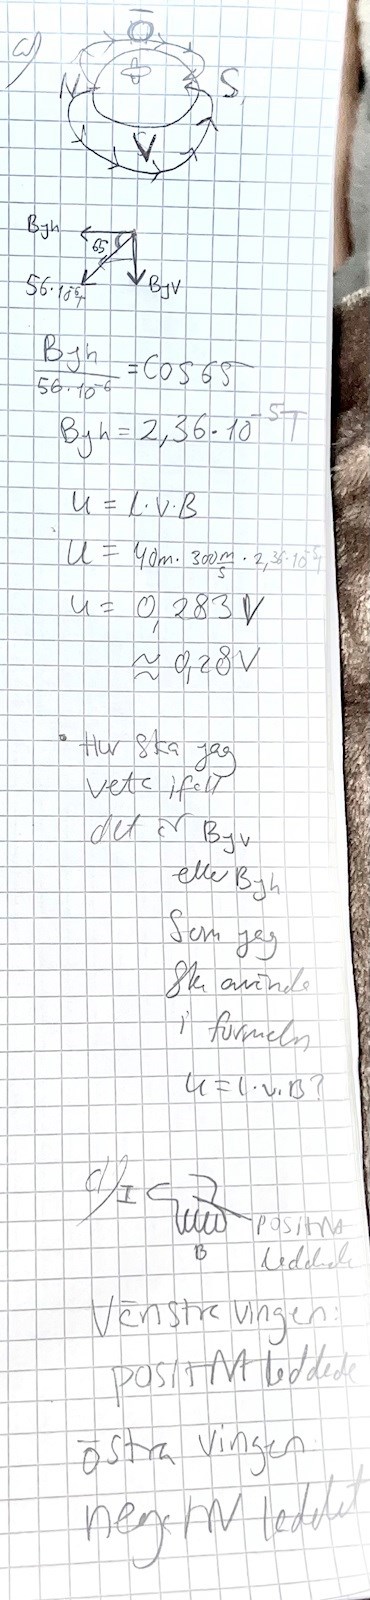 a)
Ö
N S
V
Bjh
65
56·10⁻⁶T BjV
Bjh / 56·10⁻⁶ = cos 65
Bjh = 2,36·10⁻⁵T
U = l·v·B
U = 40m · 300 m/s · 2,36·10⁻⁵T
U = 0,283V
≈ 0,28V
• Hur ska jag
veta ifall
det är Bjv
eller Bjh
Som jag
Ska använda
i formeln
U = l·v·B?
d) I
B
POSITIV
laddade
Vänstra vingen:
POSITIV laddade
östra vingen
negativ laddat